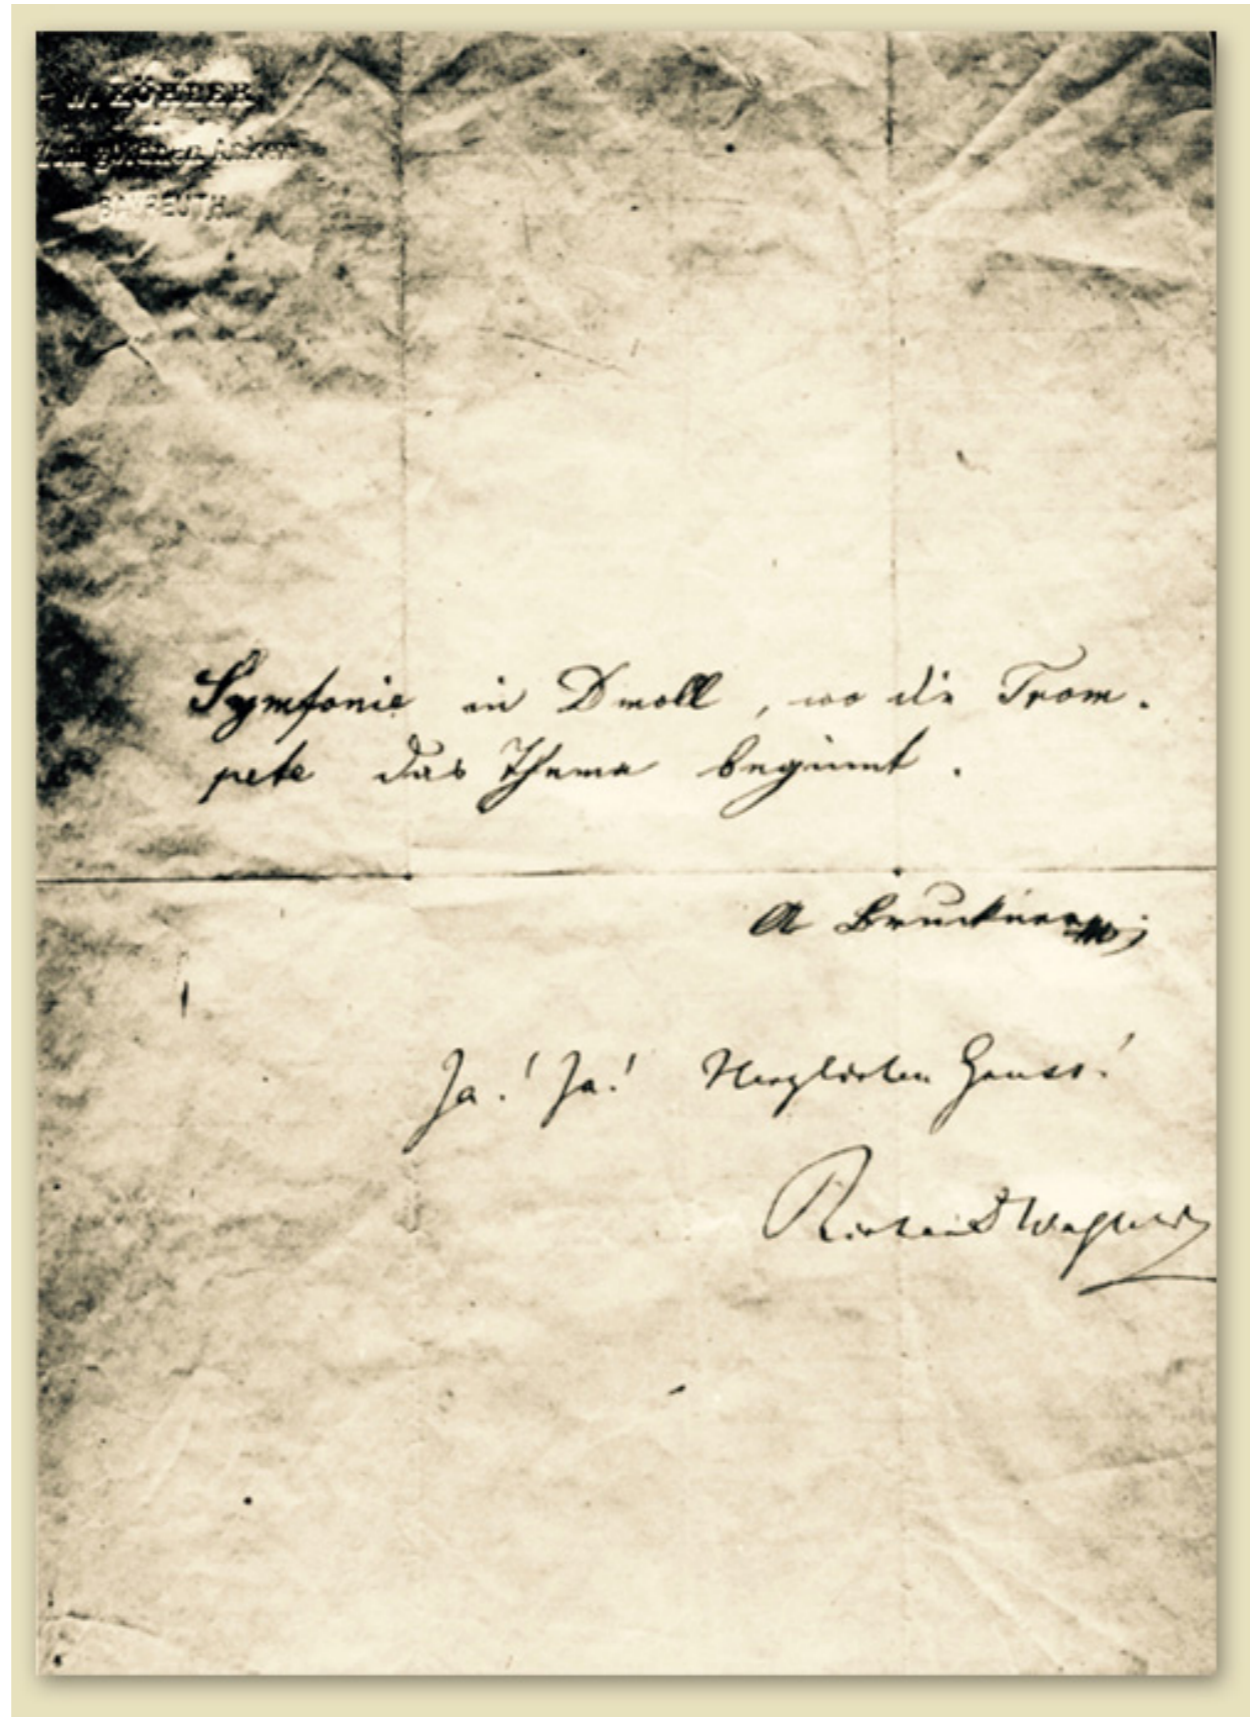 BAYREUTH.
Symfonie in Dmoll, wo die Trom-
pete das Thema beginnt.
A Bruckner
Ja! Ja! Herzlichen Gruss!
Richard Wagner